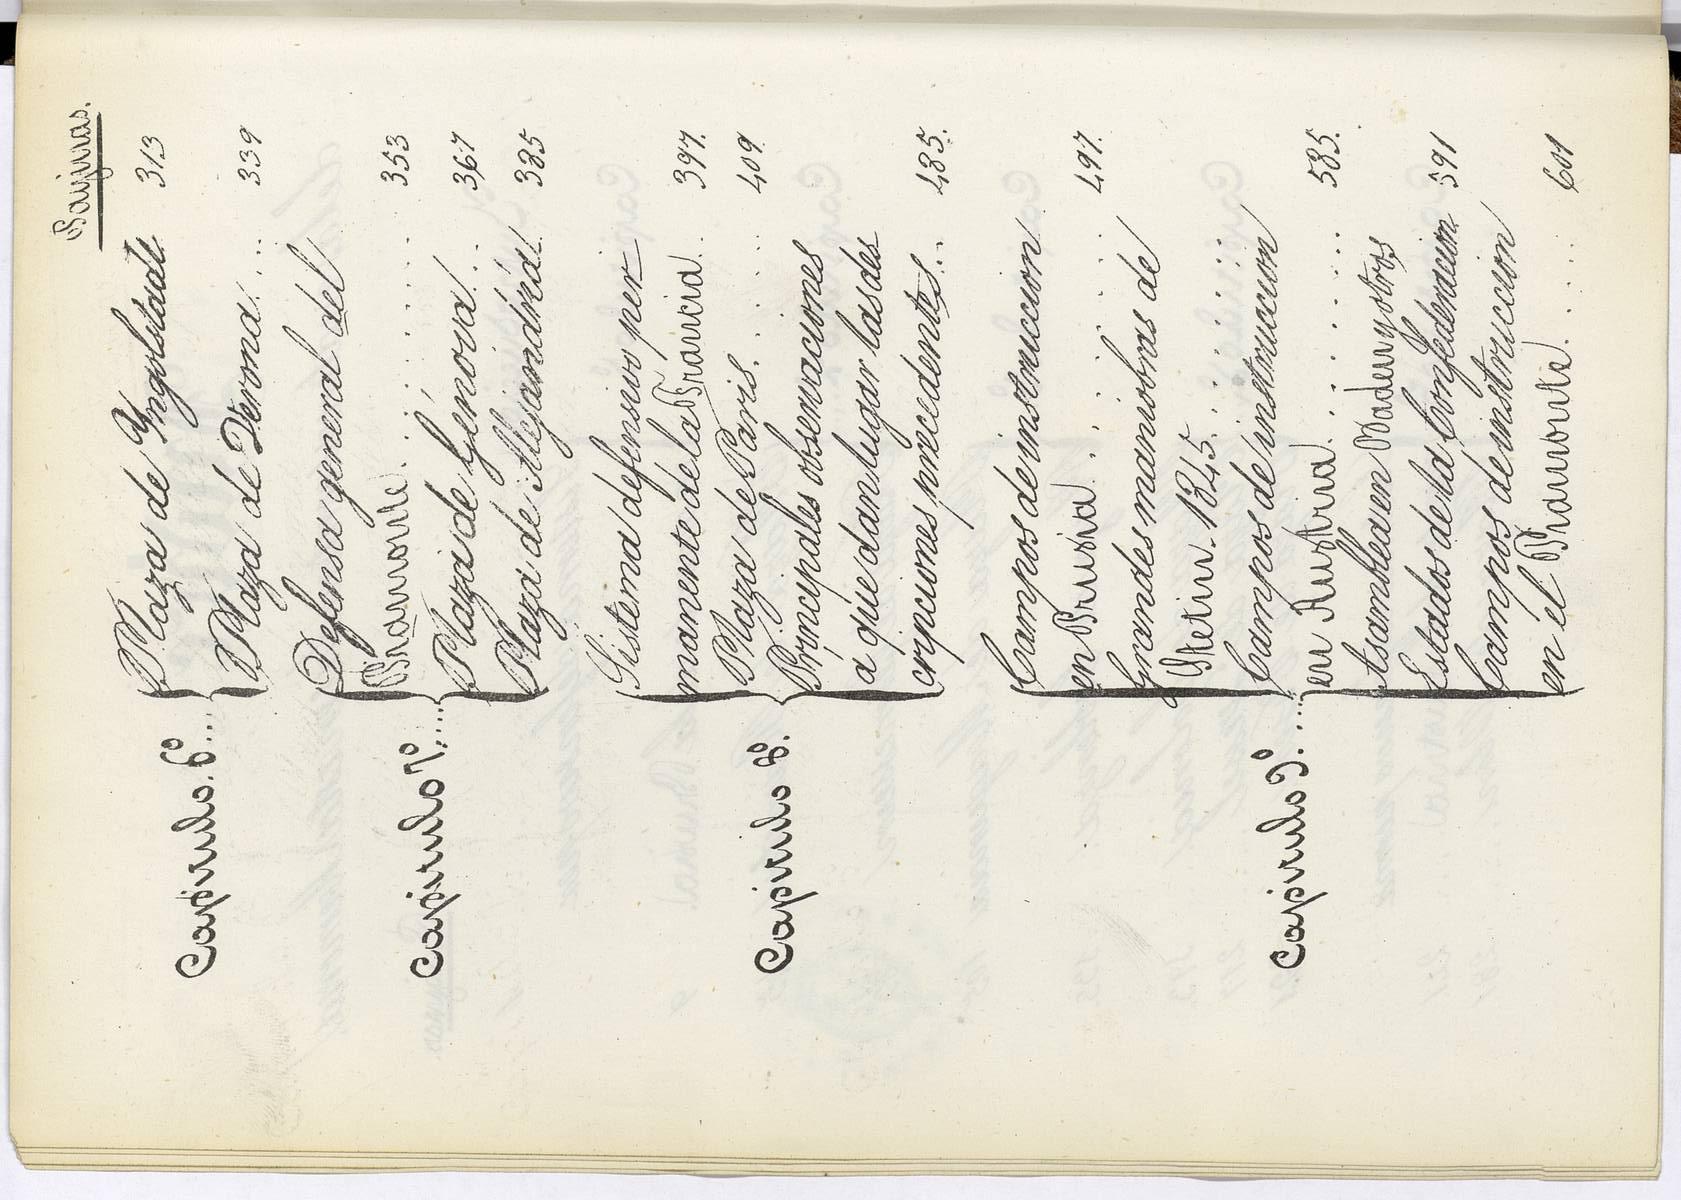 Pajinas.
Capitulo. 6º ...
Plaza de Yngolstadt 313
Plaza de Verona. ... 339
Capitulo 7º ....
Defensa general del
Piamonte. ........ 353
Plaza de Genova. .. 367
Plaza de Alejandría. 385
Capitulo 8º.
Sistema defensivo per-
manente de la Francia. 397.
Plaza de París. ..... 409
Principales observaciones
a que dan lugar las des-
cripciones precedentes. .. 485.
Capitulo 9º. ....
Campos de instruccion
en Prusia. ....... 497.
Grandes maniobras de
Stetin. 1845. ......
Campos de instruccion
en Austria. ....... 585.
Asamblea en Baden y otros
Estados de la Confederacion 591
Campos de instruccion
en el Piamonte. .... 601